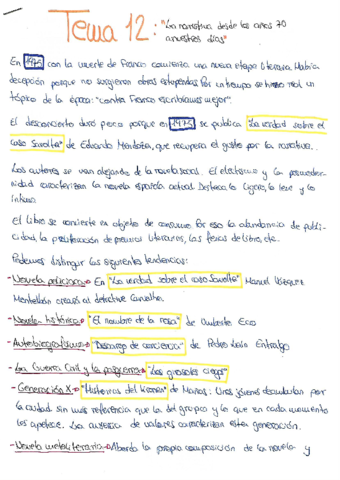 Tema 12: "La narrativa desde los años 70
a nuestros días"
En 1975 con la muerte de Franco comienza una nueva etapa literaria. Había
decepción porque no surgieron obras estupendas. Por un tiempo se hizo real un
tópico de la época: "contra Franco escribíamos mejor".
El desconcierto duró poco porque en 1975 se publica "La verdad sobre el
caso Savolta" de Eduardo Mendoza, que recupera el gusto por la narrativa.
Los autores se van alejando de la novela social. El eclecticismo y la posmoder-
nidad caracterizan la novela española actual. Destaca lo ligero, lo leve y lo
íntimo.
El libro se convierte en objeto de consumo. Por eso la abundancia de publi-
cidad, la proliferación de premios literarios, las ferias del libro, etc.
Podemos distinguir las siguientes tendencias:
-Novela policiaca → En "La verdad sobre el caso Savolta" Manuel Vázquez
Montalbán creará al detective Carvalho.
-Novela histórica → "El nombre de la rosa" de Umberto Eco
-Autobiografismo → "Descargo de conciencia" de Pedro Laín Entralgo
-La Guerra Civil y la posguerra → "Los girasoles ciegos"
-Generación X → "Historias del Kronen" de Mañas: Unos jóvenes deambulan por
la ciudad sin más referencia que la del grupo y lo que en cada momento
les apetece. La ausencia de valores caracteriza esta generación.
-Novela metaliteraria → Aborda la propia composición de la novela y